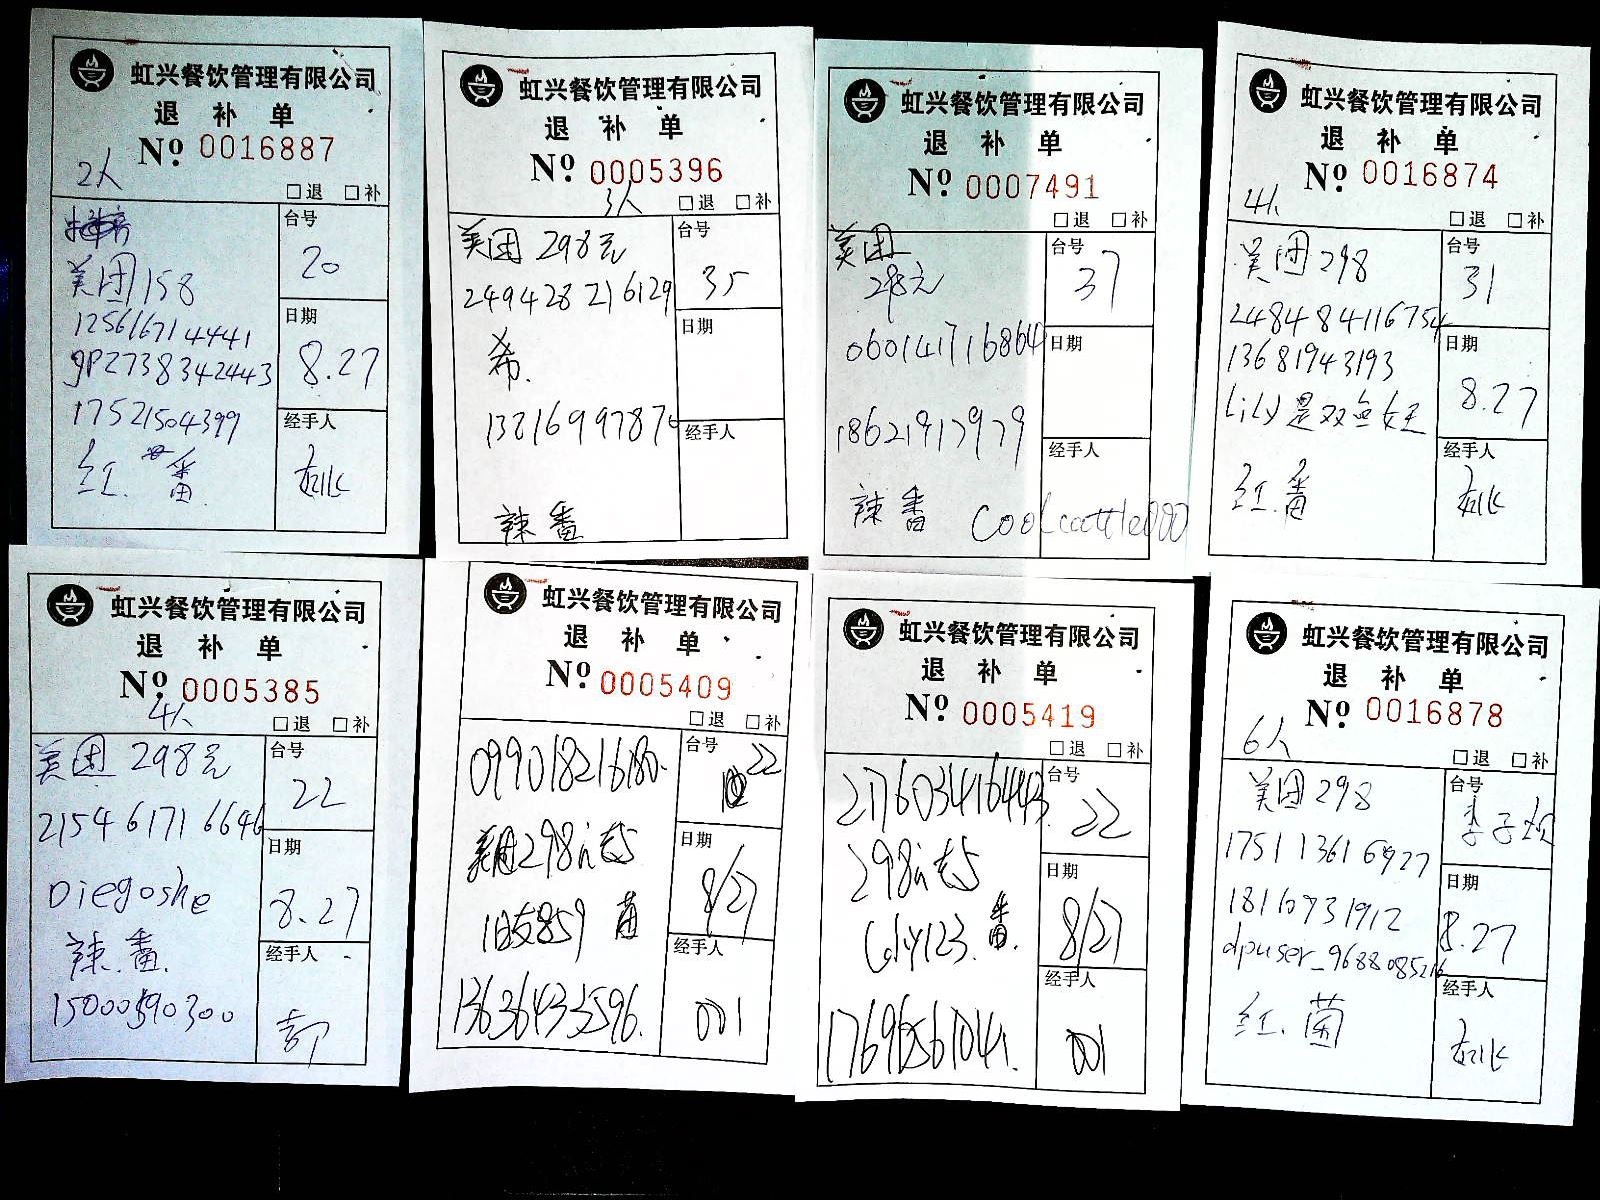 虹兴餐饮管理有限公司
退 补 单
Nº. 0016887
2人
□退 □补
台号
20
美团158
1256167144441
gp2738342443
17521504399
红. 番
日期
8.27
经手人
虹兴餐饮管理有限公司
退 补 单
Nº. 0005396
3人
□退 □补
美团 298元
249428 216129
希.
辣 番
台号
35
日期
经手人
虹兴餐饮管理有限公司
退 补 单
Nº. 0007491
□退 □补
美团
298元
0601417116864
18621917979
辣 番 Coolcattle000
台号
37
日期
经手人
虹兴餐饮管理有限公司
退 补 单
Nº. 0016874
4人
□退 □补
美团 298
248484116754
13681943193
Lily是双鱼女王
红. 番
台号
31
日期
8.27
经手人
虹兴餐饮管理有限公司
退 补 单
Nº. 0005385
4人
□退 □补
美团 298元
2154 6171 6646
Diegoshe
辣. 番.
15000590300
台号
22
日期
8.27
经手人
虹兴餐饮管理有限公司
退 补 单
Nº. 0005409
□退 □补
0990182161680.
美团298
859 菌
13636433596.
台号
22
日期
8/27
经手人
001
虹兴餐饮管理有限公司
退 补 单
Nº. 0005419
□退 □补
2176034164443.
298
番.
台号
22
日期
8/27
经手人
001
虹兴餐饮管理有限公司
退 补 单
Nº. 0016878
6人
□退 □补
美团 298
1751 1361 6927
18116931912
dpuser_9688085216
红. 菌
台号
日期
8.27
经手人